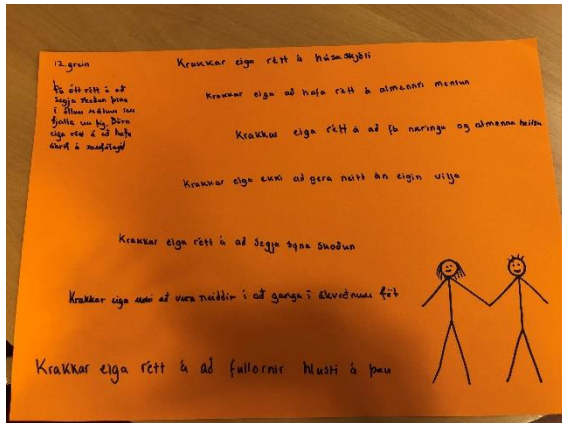 12. grein
Þú átt rétt á að
segja skoðun þína
í öllum málum sem
fjalla um þig. Börn
eiga rétt á að hafa
áhrif á samfélagið
Krakkar eiga rétt á húsaskjóli
Krakkar eiga að hafa rétt á almennri mentun
Krakkar eiga rétt á að fá næringu og almenna heilsu
Krakkar eiga ekki að gera neitt án eigin vilja
Krakkar eiga rétt á að segja sýna skoðun
Krakkar eiga ekki að vera neiddir í að ganga í ákveðnum föt
Krakkar eiga rétt á að fullornir hlusti á þau